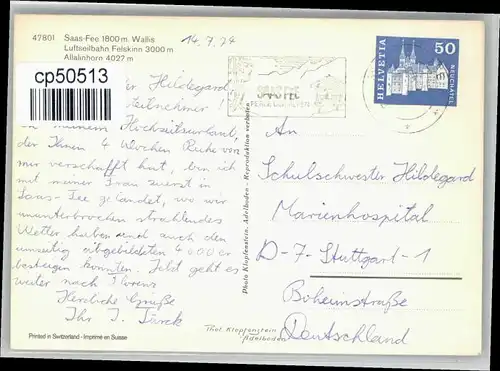 47801 Saas-Fee 1800 m. Wallis
Luftseilbahn Felskinn 3000 m
Allalinhorn 4027 m
14.7.74
cp50513
SAAS FEE
PERLE DER ALPEN
HELVETIA
50
NEUCHATEL
Hildegard
meinem Hochzeitsurlaub,
der Ihnen 4 Wochen Ruhe vor
mir verschafft hat, bin ich
mit meiner Frau zuerst in
Saas-Fee gelandet, wo wir
ununterbrochen strahlendes
Wetter haben und auch den
umseitig abgebildeten 4000er
besteigen konnten. Jetzt geht es
weiter nach Florenz
Herzliche Grüße
Ihr J. Türck
An
Schulschwester Hildegard
Marienhospital
D-7-Stuttgart-1
Böheimstraße
Deutschland
Photo Klopfenstein, Adelboden - Reproduktion verboten
Thel. Klopfenstein
Adelboden
Printed in Switzerland - Imprimé en Suisse